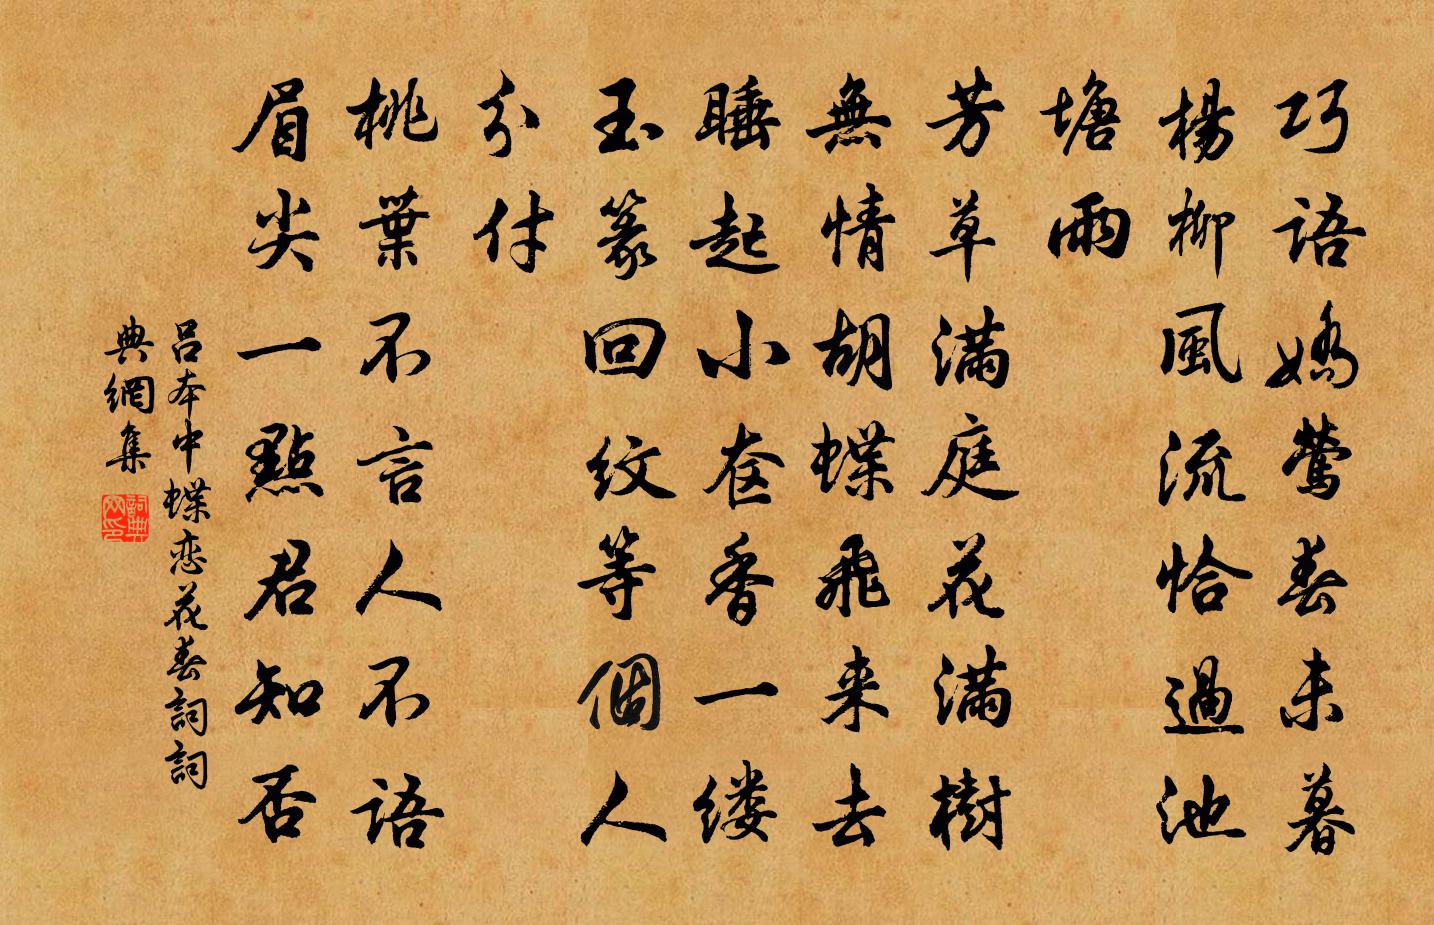 巧語嬌鶯春未暮
楊柳風流恰過池
塘雨
芳草滿庭花滿樹
無情胡蝶飛来去
睡起小奁香一缕
玉篆回紋等個人
分付
桃葉不言人不語
眉尖一點君知否
吕本中蝶恋花春詞詞
典網集
詞典网印